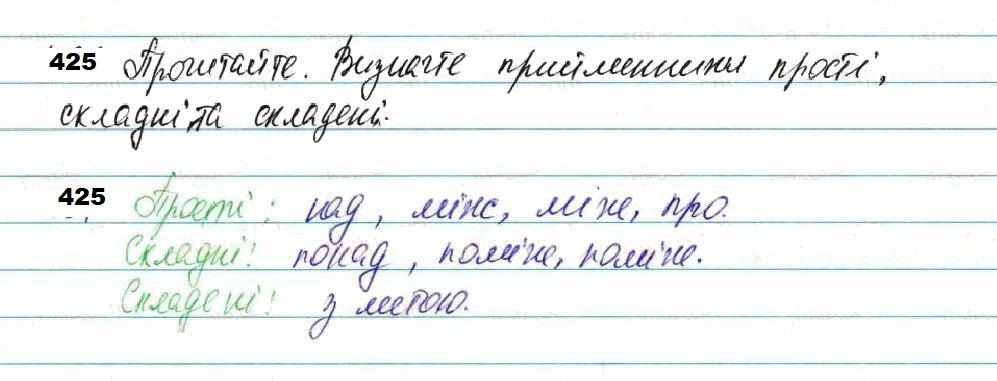 425 Прочитайте. Визначте прийменники прості,
складні та складені.
425 Прості: над, між, між, про.
Складні: понад, поміж, поміж.
Складені: з метою.